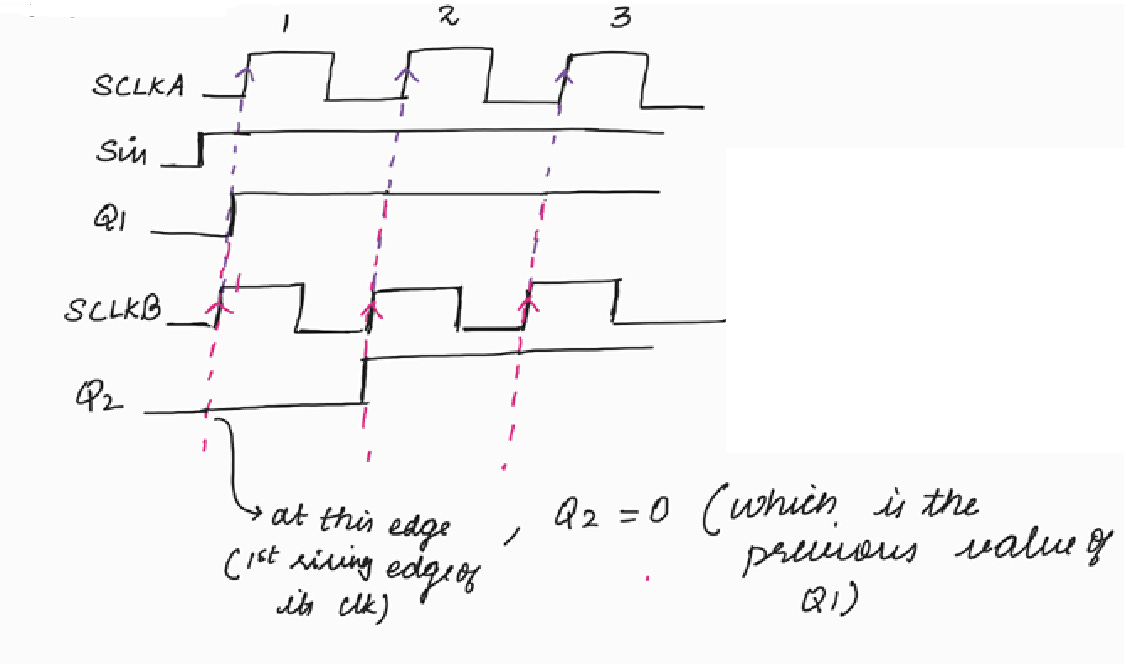 1 2 3
SCLKA
Sin
Q1
SCLKB
Q2
at this edge
(1st rising edge of
its clk)
, Q2 = 0 (which is the
previous value of
Q1)